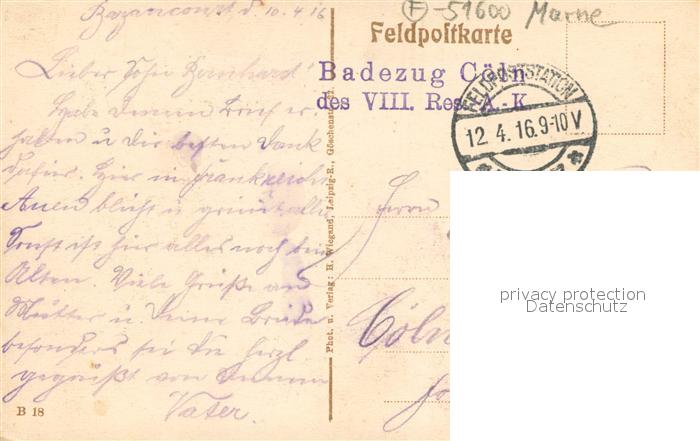 Bazancourt, d. 10.4.16
Lieber Sohn Bernhard!
Habe Deinen Brief er-
halten u. Dir besten Dank
dafür. Hier in Frankreich
blüht u. grünt alles
sonst ist hier alles noch beim
Alten. Viele Grüße an
Mutter u. Deine Brüder
besonders sei Du herzl.
gegrüßt von Deinem
Vater.
B 18
Phot. u. Verlag: H. Wiegand, Leipzig-R., Göschenstr.
F - 51600 Marne
Feldpostkarte
Badezug Cöln
des VIII. Res. A.-K.
FELDPOSTSTATION
12.4.16.9-10V
Herrn
Cöln
privacy protection
Datenschutz